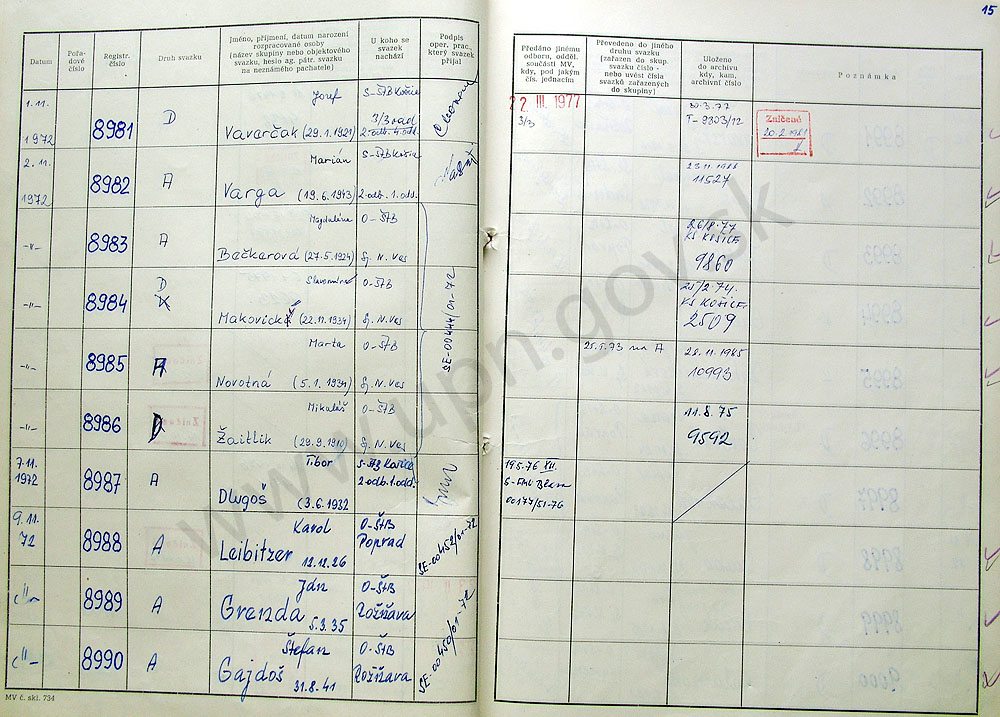 15
Datum
Pořa-
dové
číslo
Registr.
číslo
Druh svazku
Jméno, příjmení, datum narození
rozpracované osoby
(název skupiny nebo objektového
svazku, heslo ag. pátr. svazku
na neznámého pachatele)
U koho se
svazek
nachází
Podpis
oper. prac.,
který svazek
přijal
Předáno jinému
odboru, odděl.
součásti MV,
kdy, pod jakým
čís. jednacím
Převedeno do jiného
druhu svazku
(zařazen do skup.
svazku číslo -
nebo uvést čísla
svazků zařazených
do skupiny)
Uloženo
do archivu
kdy, kam,
archivní číslo
Poznámka
1.11.
1972
8981
D
Jozef
Vavarčak (29.1.1921)
S-ŠtB Košice
2. odb. 4. odd.
22 III. 1977
3/3
30.3.77
T-9803/12
Zničené
20.2.1981
2.11.
1972
8982
A
Marián
Varga (19.6.1943)
S-ŠtB Košice
2-odb. 1. odd.
11527
-"-
8983
A
Magdaléna
Bečkerová (27.5.1924)
O-ŠtB
Sp. N. Ves
26/8.77
KS KOŠICE
9860
-"-
8984
D
Makovický (22.11.1934)
O-ŠtB
Sp. N. Ves
SE-00444/01-72
KS KOŠICE
2509
-"-
8985
A
Marta
Novotná (5.1.1934)
O-ŠtB
Sp. N. Ves
25.5.73 na A
28.11.1985
10993
-"-
8986
D
Mikuláš
Žaitlik (29.9.1910)
O-ŠtB
Sp. N. Ves
11.8.75
9592
7.11.
1972
8987
A
Tibor
Dlugoš (3.6.1932
S-ŠtB Košice
2-odb. 1. odd.
19.5.76 XII.
00177/51-76
9.11.
72
8988
A
Karol
Leibitzer 12.12.26
O-ŠtB
Poprad
SE-00452/01-72
-"-
8989
A
Ján
Grenda 5.3.35
O-ŠtB
Rožňava
-"-
8990
A
Štefan
Gajdoš 31.8.41
O-ŠtB
Rožňava
SE-00450/01-72
MV č. skl. 734
www.upn.gov.sk